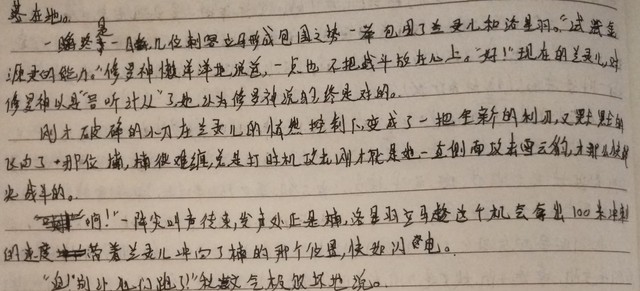 基在地。
一瞬是一瞬几位刺客立马形成包围之势一举包围了兰灵儿和洛星羽。"试试金
源灵的能力。"修罗神懒洋洋地说道,一点也不把战斗放在心上。"好!"现在的兰灵儿,对
修罗神以是"言听计从"了她认为修罗神说的终是对的。
刚才破碎的小刀在兰灵儿的情然控制下,变成了一把全新的利刃,又
飞向了那位楠,楠很难缠总是打时机攻去刚才就是她一直侧面攻去
尖战半的。
"啊!"一阵尖叫声传来,发声处正是楠,洛星羽立马趁这个机会拿出100米冲刺
的速度带着兰灵儿冲向了楠的那个位置,快如闪电。
"追!别让他们跑了!"气极败坏地说。